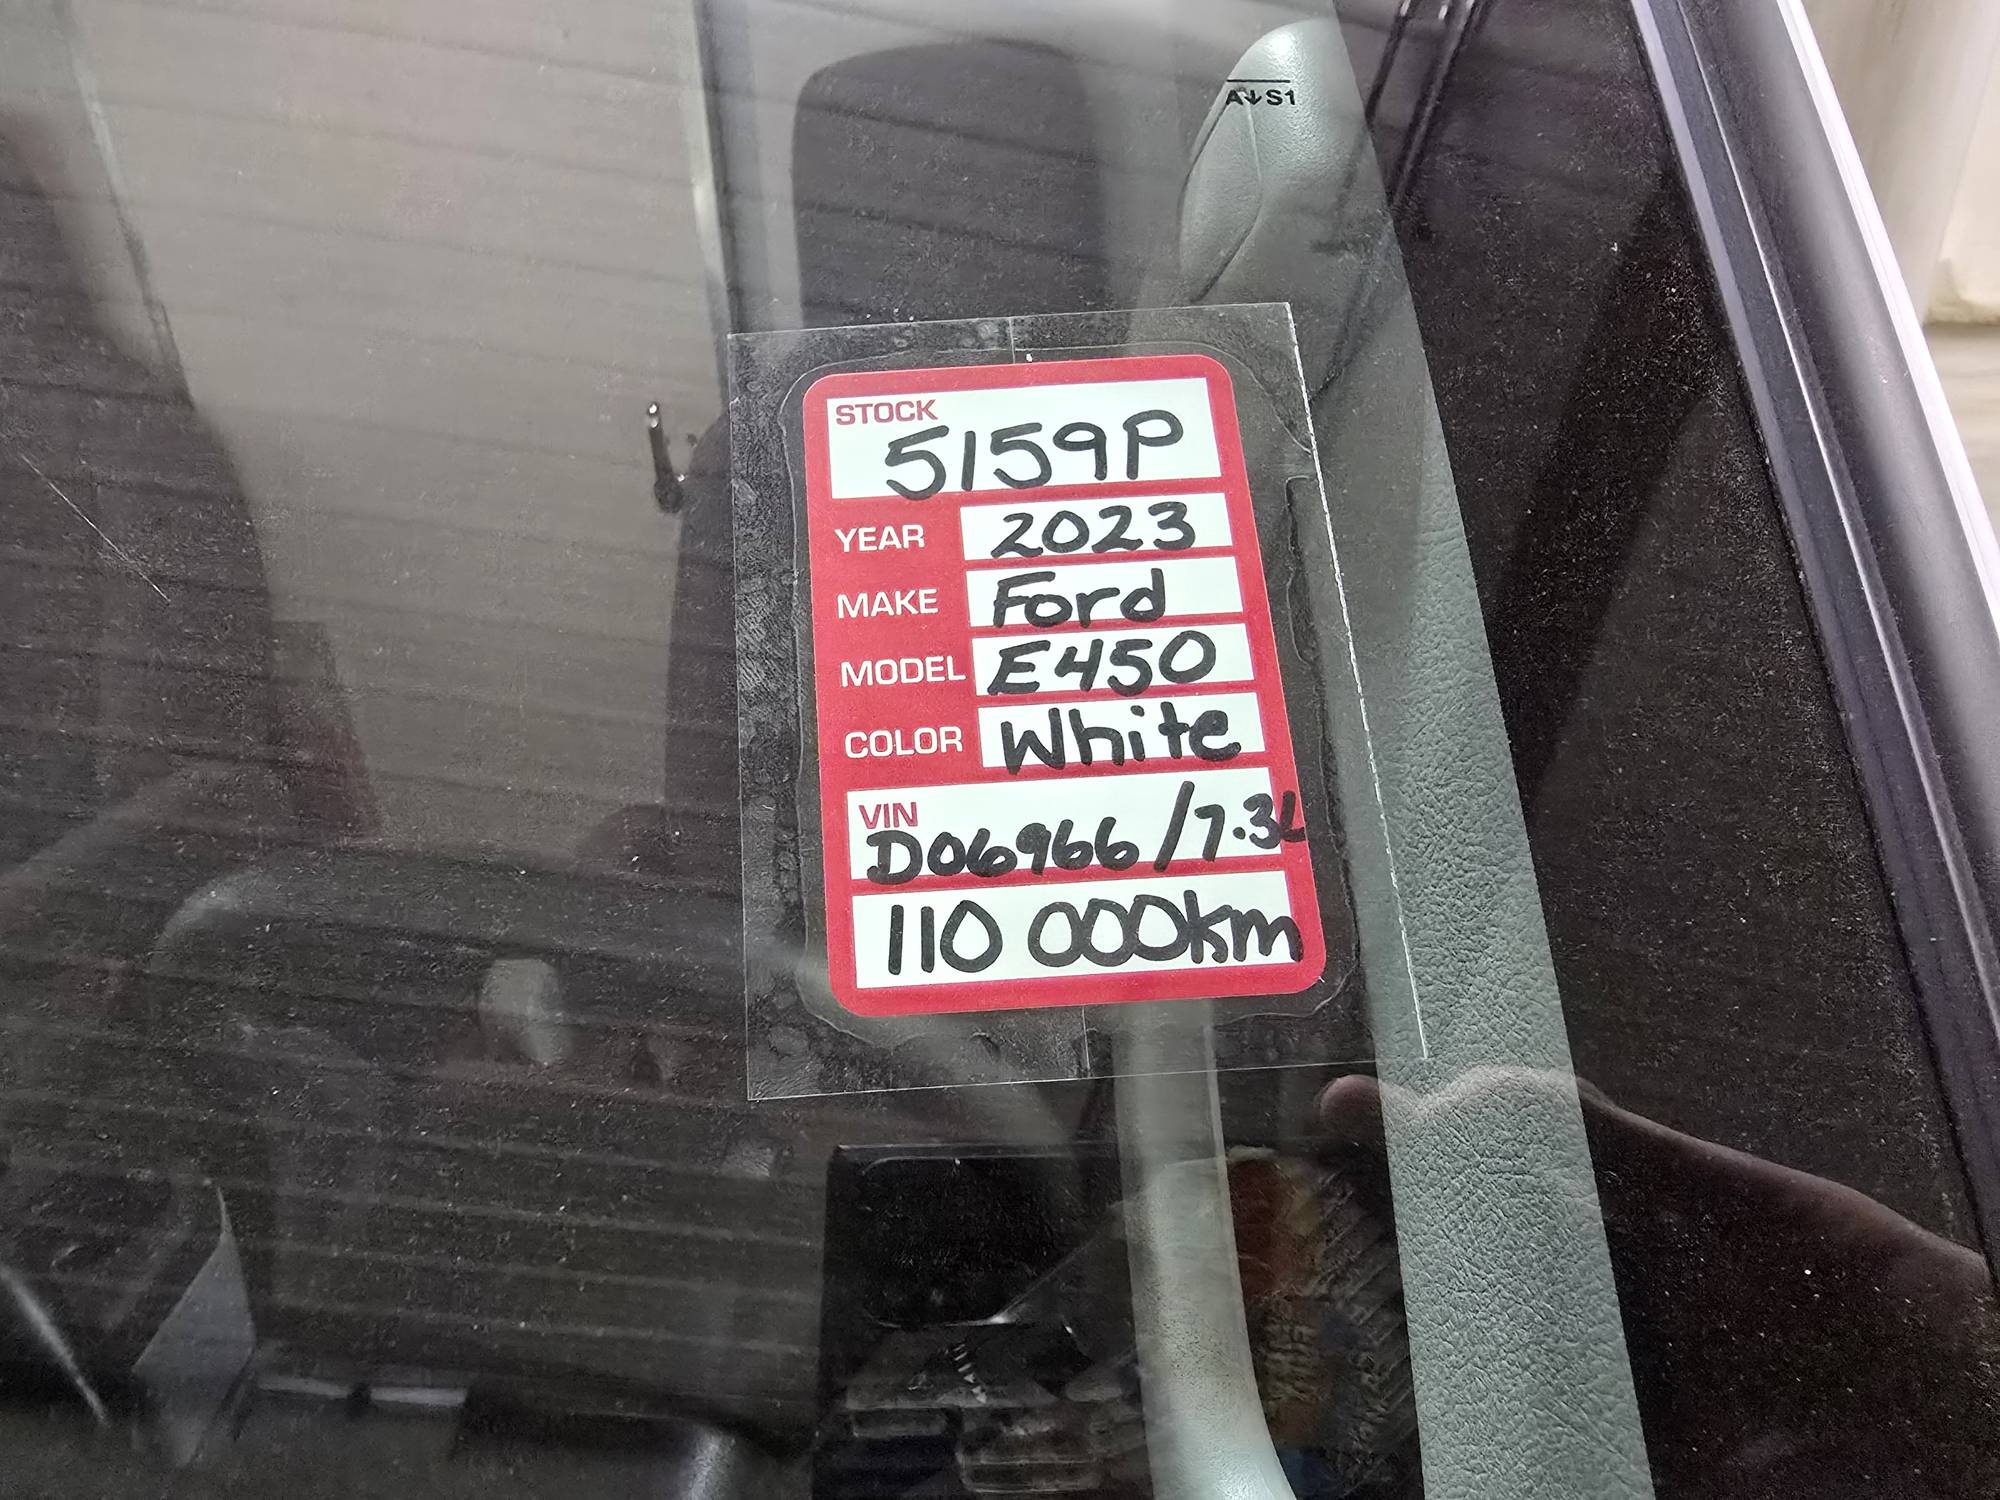 A↓S1
STOCK
5159P
YEAR 2023
MAKE Ford
MODEL E450
COLOR White
VIN
D06966/7.3L
110 000km